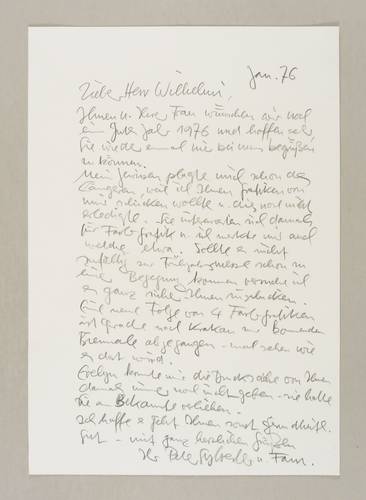 Jan. 76
Lieber Herr Wilhelmi,
Ihnen u. Ihrer Frau wünschen wir noch
ein gutes Jahr 1976 und hoffen sehr,
Sie wieder einmal hier bei uns begrüßen
zu können.
Mein Gewissen plagte mich schon des
Längeren, weil ich Ihnen Grafiken von
mir schicken wollte u. dies noch nicht
erledigte. Sie interessierten sich damals
für Farbgrafik u. ich merkte mir auch
welche etwa. Sollte es nicht
zufällig zur Frühjahrsmesse schon zu
einer Begegnung kommen versuche ich
es ganz sicher Ihnen zuzuschicken.
Eine neue Folge von 4 Farbgrafiken
ist gerade nach Krakau zur
Biennale abgegangen - mal sehen wie
es dort wird.
Evelyn konnte mir die Drucksache von Ihnen
damals immer noch nicht geben - sie hatte
sie an Bekannte verliehen.
Ich hoffe es geht Ihnen sonst gesundheitl.
gut - mit ganz herzlichen Grüßen
Ihr Peter Sylvester u. Fam.